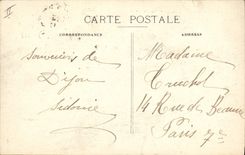 CARTE POSTALE
CORRESPONDANCE
ADRESSE
Souvenirs de
Dijon
Sidonie
Madame
Truchot
14 Rue de Beaune
Paris 7e